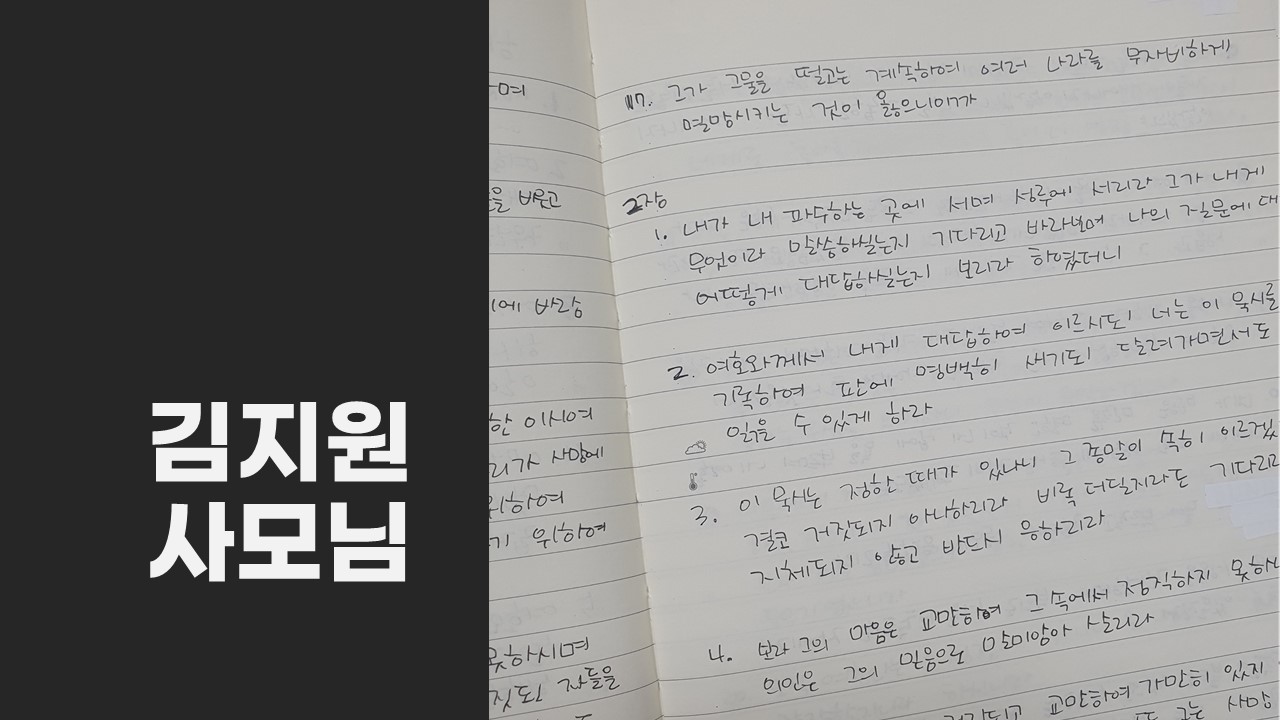 김지원
사모님
며
을 바울고
에 바람
한 이시여
리가 사망에
위하여
기 위하여
못하시며
짓도다 자들을
17. 그가 그물을 떨고는 계속하여 여러 나라를 무자비하게
멸망시키는 것이 옳으니이까
2장
1. 내가 내 파수하는 곳에 서며 성루에 서리라 그가 내게
무엇이라 말씀하실는지 기다리고 바라보며 나의 질문에 대
어떻게 대답하실는지 보리라 하였더니
2. 여호와께서 내게 대답하여 이르시되 너는 이 묵시를
기록하여 판에 명백히 새기되 달려가면서도
읽을 수 있게 하라
3. 이 묵시는 정한 때가 있나니 그 종말이 속히 이르겠
결코 거짓되지 아니하리라 비록 더딜지라도 기다리라
지체되지 않고 반드시 응하리라
4. 보라 그의 마음은 교만하여 그 속에서 정직하지 못하
의인은 그의 믿음으로 말미암아 살리라
교만하여 가만히 있지
그는 사망